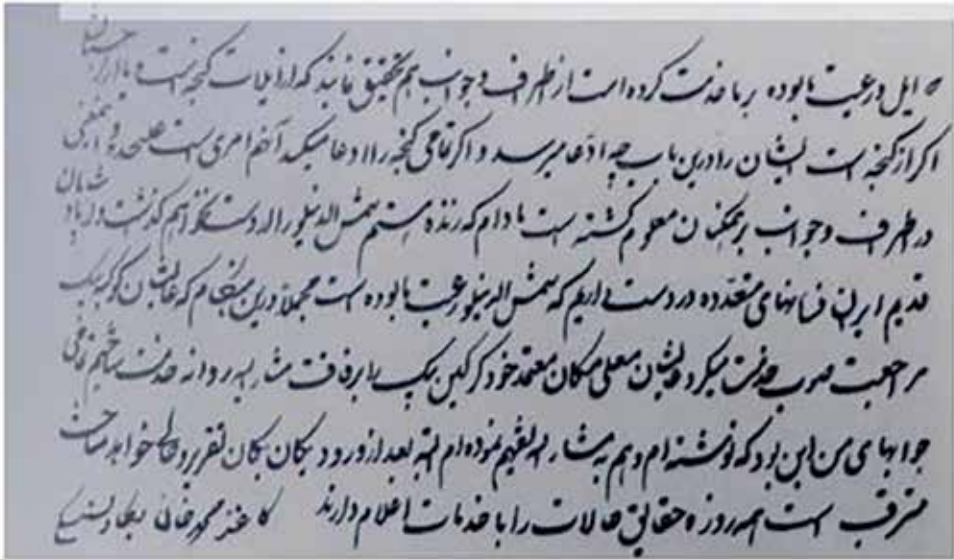 ایل و رعیت ما بوده بر ما خدمت کرده است از اطراف و جوانب هم تحقیق نمایند که از ایلات گنجه است یا از
اگر از گنجه است ایشان را درین باب چه ادعا میرسد و اگر تمامی گنجه را ادعا میکنید آنهم امری است علیحده و
در اطراف و جوانب بر همکنان معلوم گشته است مادام که زنده هستم شمس الدینلو را از دست نخواهم گذشت و از
قدیم ایران فرمانهای متعدده در دست داریم که شمس الدینلو رعیت ما بوده است مجملا درین
مراجعت صوب خدمت میکرد ایشان معلی مکان معتمد خود گرگین بیک را برفاقت مشار الیه روانه خدمت ساختیم تمامی
جوابهای من این بود که نوشته ام و هم به مشار الیه تفهیم نموده ام البته بعد از ورود یکان یکان تقریر و حالی خواهد ساخت
مترقب است همه روزه حقایق حالات را با خدمات اعلام دارند کاغذ محمد خان